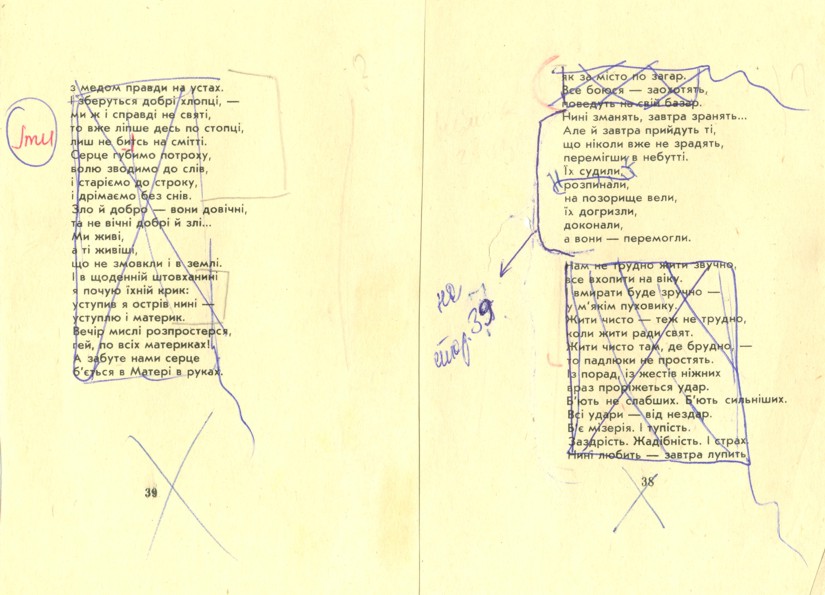 з медом правди на устах.
І зберуться добрі хлопці, —
ми ж і справді не святі,
то вже ліпше десь по стопці,
лиш не битсь на смітті.
Серце губимо потроху,
волю зводимо до слів,
і старіємо до строку,
і дрімаємо без снів.
Зло й добро — вони довічні,
та не вічні добрі й злі...
Ми живі,
а ті живіші,
що не змовкли і в землі.
І в щоденній штовханині
я почую їхній крик:
уступив я острів нині —
уступлю і материк.
Вечір мислі розпростерся,
гей, по всіх материках!
А забуте нами серце
б'ється в Матері в руках.
39
як за місто по загар.
Все боюся — заохотять,
поведуть на свій базар.
Нині зманять, завтра зранять...
Але й завтра прийдуть ті,
що ніколи вже не зрадять,
перемігши в небутті.
Їх судили,
розпинали,
на позорище вели,
їх догризли,
доконали,
а вони — перемогли.
на
стор. 39
Нам не трудно жити звучно,
все вхопити на віку.
І вмирати буде зручно —
у м'якім пуховику.
Жити чисто — теж не трудно,
коли жити ради свят.
Жити чисто там, де брудно, —
то падлюки не простять.
Із порад, із жестів ніжних
враз проріжеться удар.
Б'ють не слабших. Б'ють сильніших.
Всі удари — від нездар.
Б'є мізерія. І тупість.
Заздрість. Жадібність. І страх.
Нині любить — завтра лупить
38